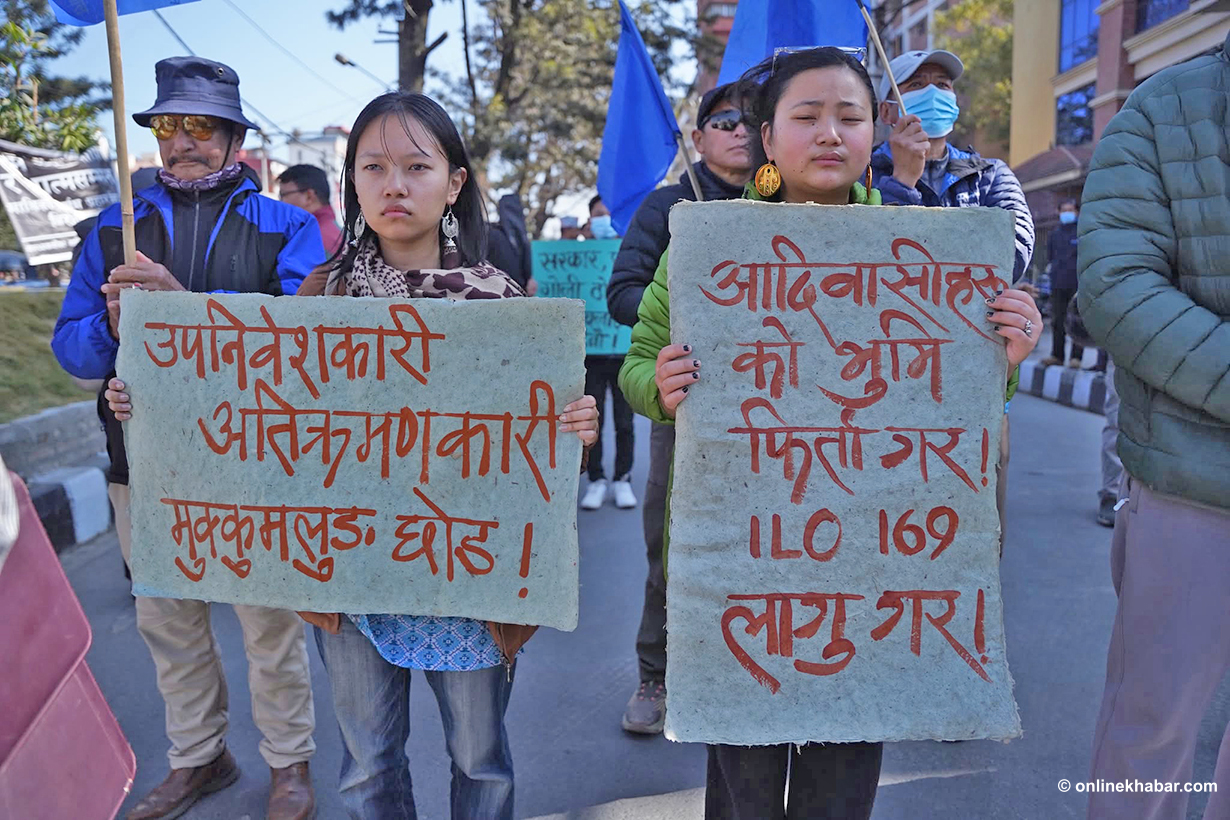 उपनिवेशकारी
अतिक्रमणकारी
मुक्कुमलुङ छोड !
आदिवासीहरू
को भुमि
फिर्ता गर !
ILO 169
लागु गर !
सरकार,
गोली
© onlinekhabar.com